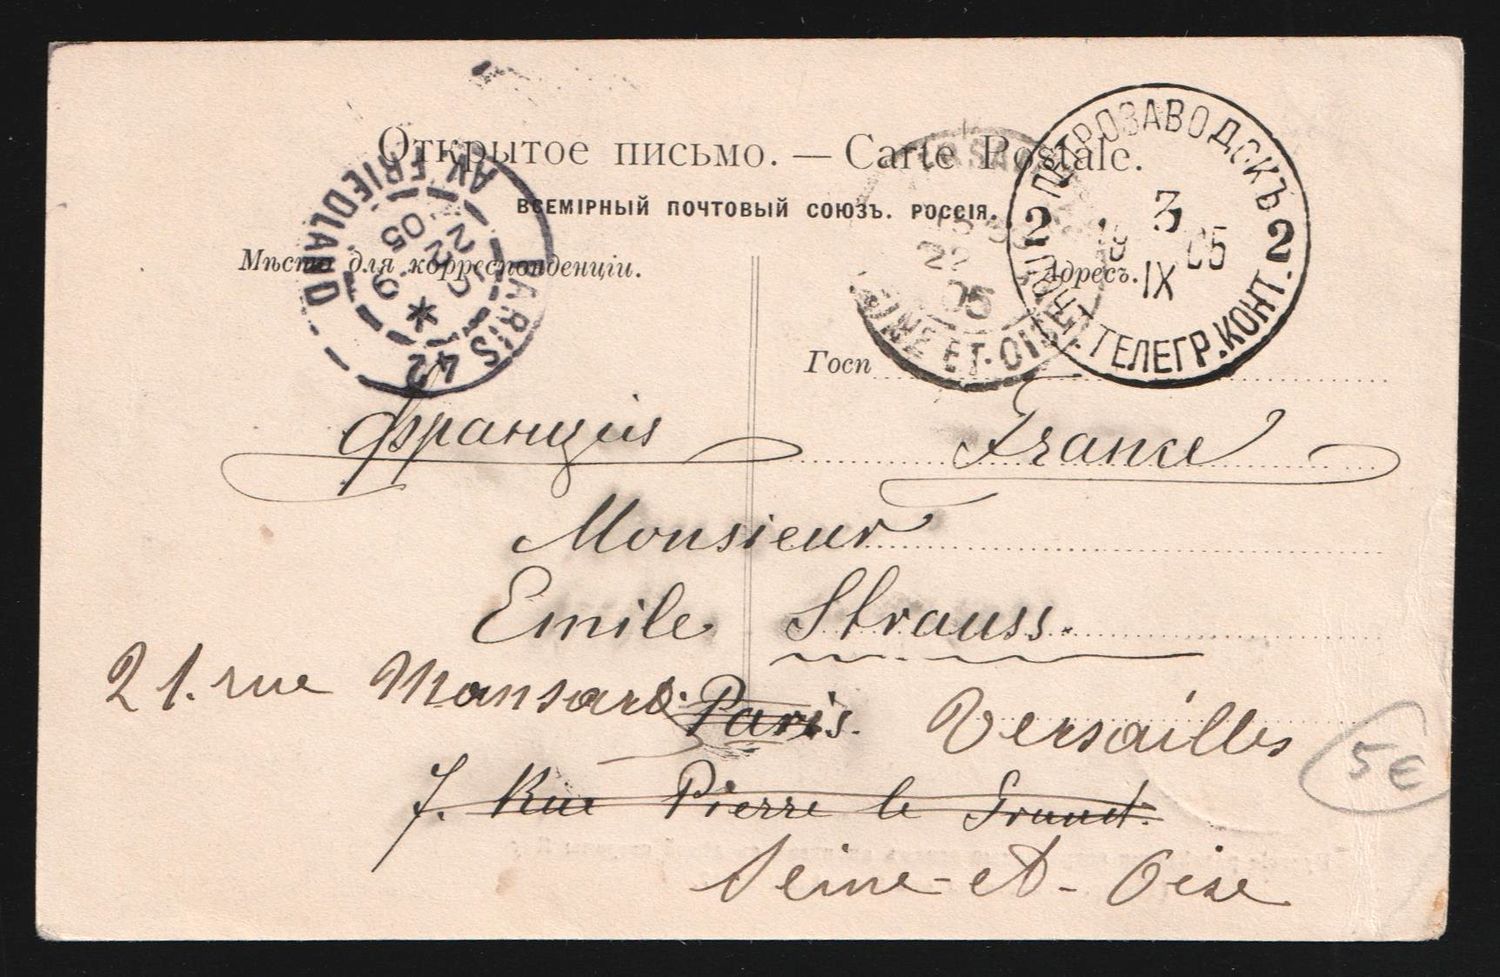 Открытое письмо. — Carte Postale.
ВСЕМІРНЫЙ ПОЧТОВЫЙ СОЮЗЪ. РОССІЯ.
Мѣсто для корреспонденціи.
Адресъ.
PARIS 42
AV. FRIEDLAND
22
05
SEINE-ET-OISE
22
05
ПЕТРОЗАВОДСКЪ
2 2
3
IX
1905
ПОЧТ. ТЕЛЕГР. КОНТ.
Госп
France
Monsieur
Emile Strauss.
21. rue Mansard. Paris. Versailles
7. Rue Pierre le Grand.
Seine-et-Oise
5€